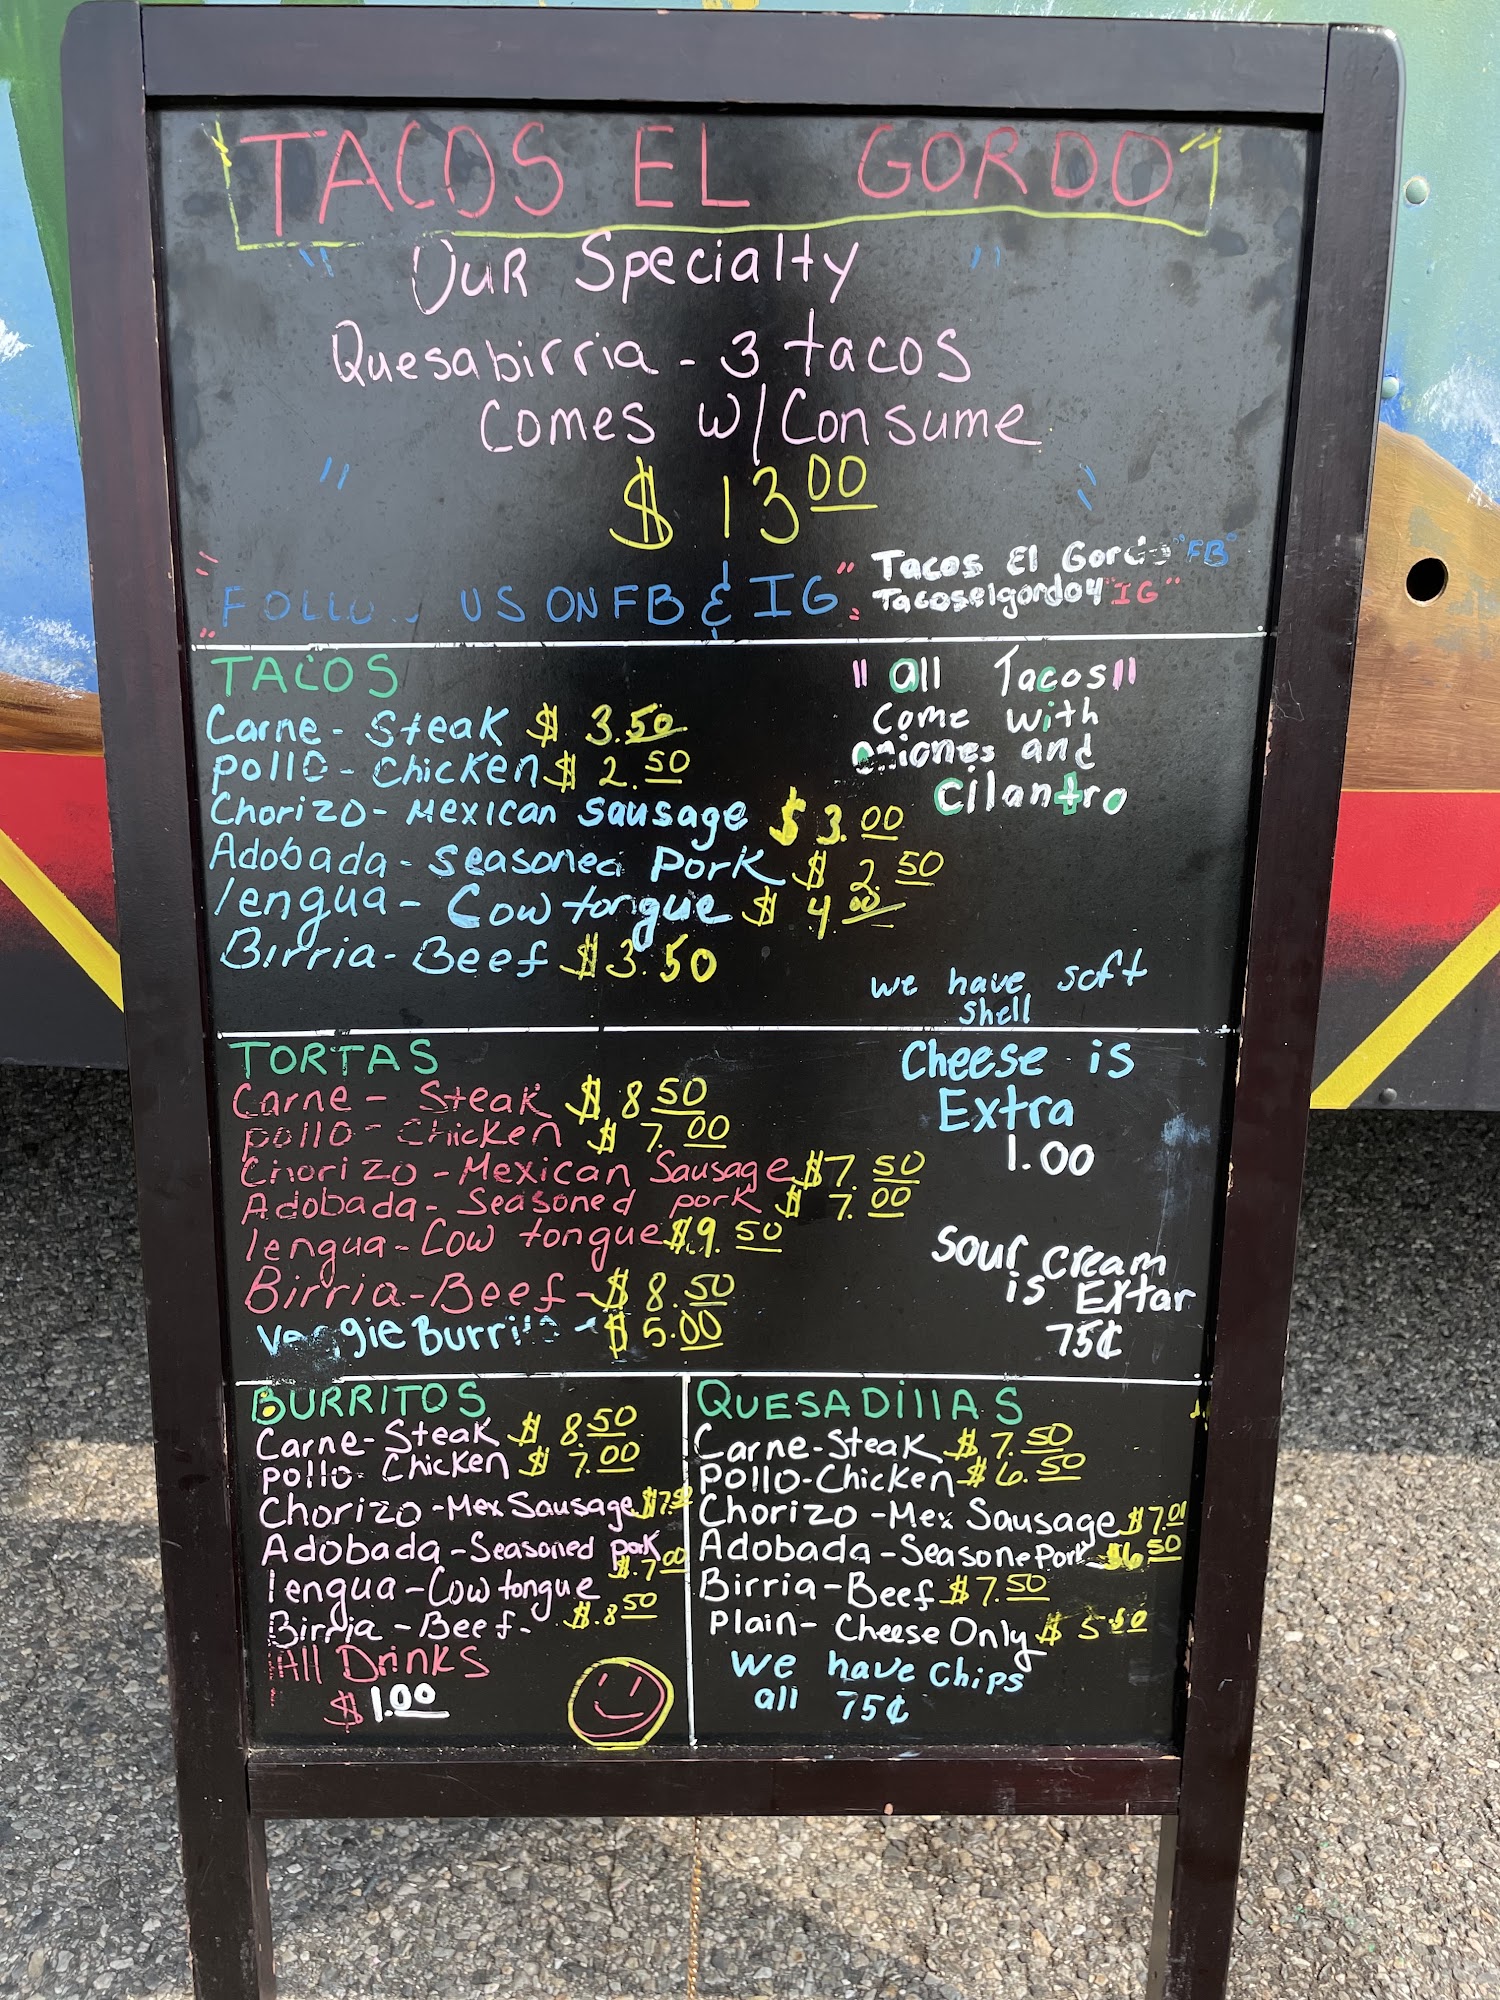 TACOS EL GORDO
" Our Specialty "
Quesabirria - 3 tacos
Comes w/ Consume
" $ 13.00 "
" US ON FB & IG "
Tacos El Gordo "FB"
Tacoselgordo4 "IG"
TACOS
Carne - Steak $ 3.50
pollo - Chicken $ 2.50
Chorizo - Mexican Sausage $ 3.00
Adobada - Seasoned Pork $ 2.50
lengua - Cow tongue $ 4.00
Birria - Beef $3.50
"All Tacos"
Come with
oniones and
Cilantro
we have soft
shell
TORTAS
Carne - Steak $ 8.50
pollo - Chicken $ 7.00
Chorizo - Mexican Sausage $7.50
Adobada - Seasoned pork $ 7.00
lengua - Cow tongue $9.50
Birria - Beef - $ 8.50
Veggie Burrito - $ 5.00
Cheese is
Extra
1.00
Sour Cream
is Extar
75¢
BURRITOS
Carne - Steak $ 8.50
pollo - Chicken $ 7.00
Chorizo - Mex Sausage $7.50
Adobada - Seasoned pork
$.7.00
lengua - Cow tongue
Birria - Beef - $.8.50
All Drinks
$ 1.00
QUESADillAS
Carne - Steak $ 7.50
Pollo - Chicken $ 6.50
Chorizo - Mex Sausage $7.00
Adobada - Seasone Pork $6.50
Birria - Beef $ 7.50
Plain - Cheese Only $ 5.50
We have Chips
all 75¢